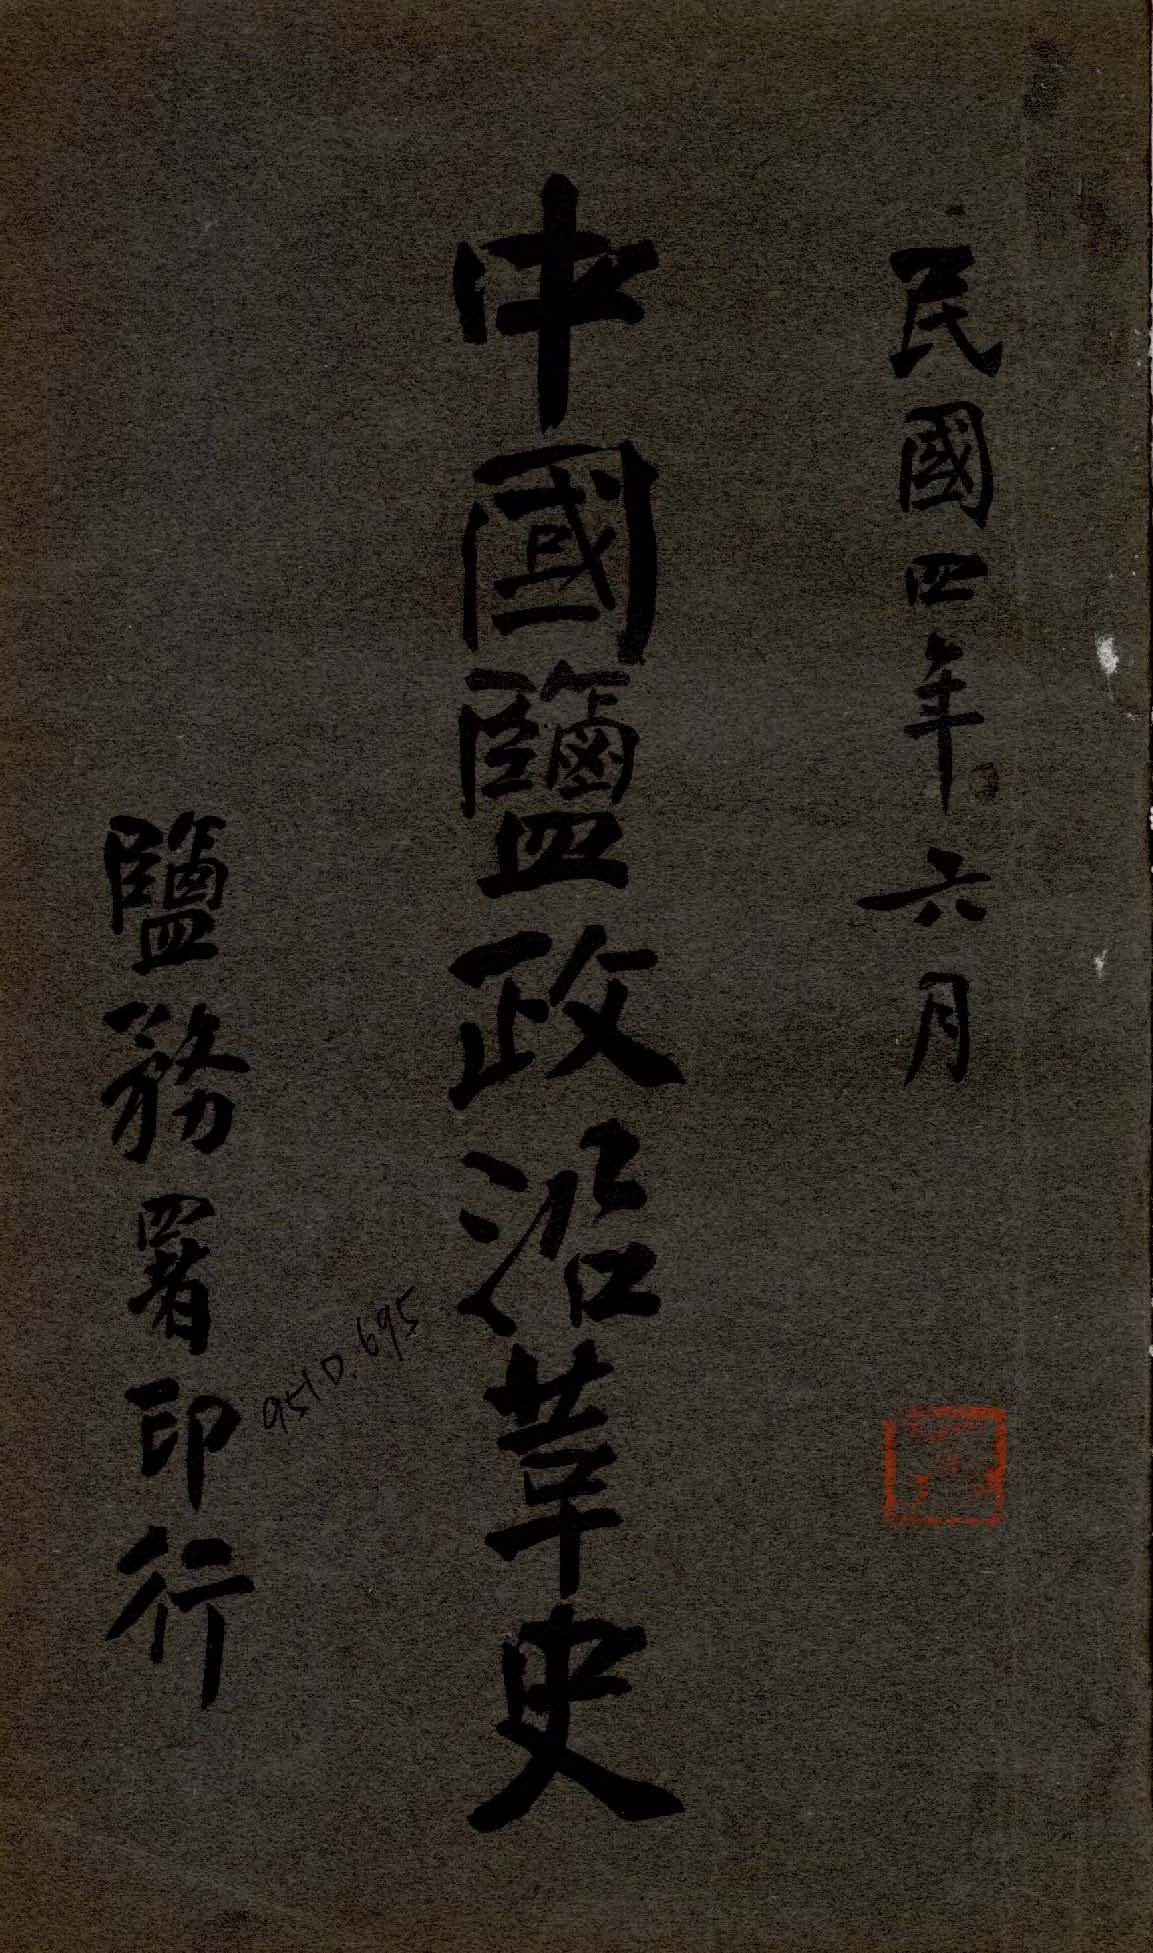 民國四年六月
中國鹽政沿革史
鹽務署印行
951D.695